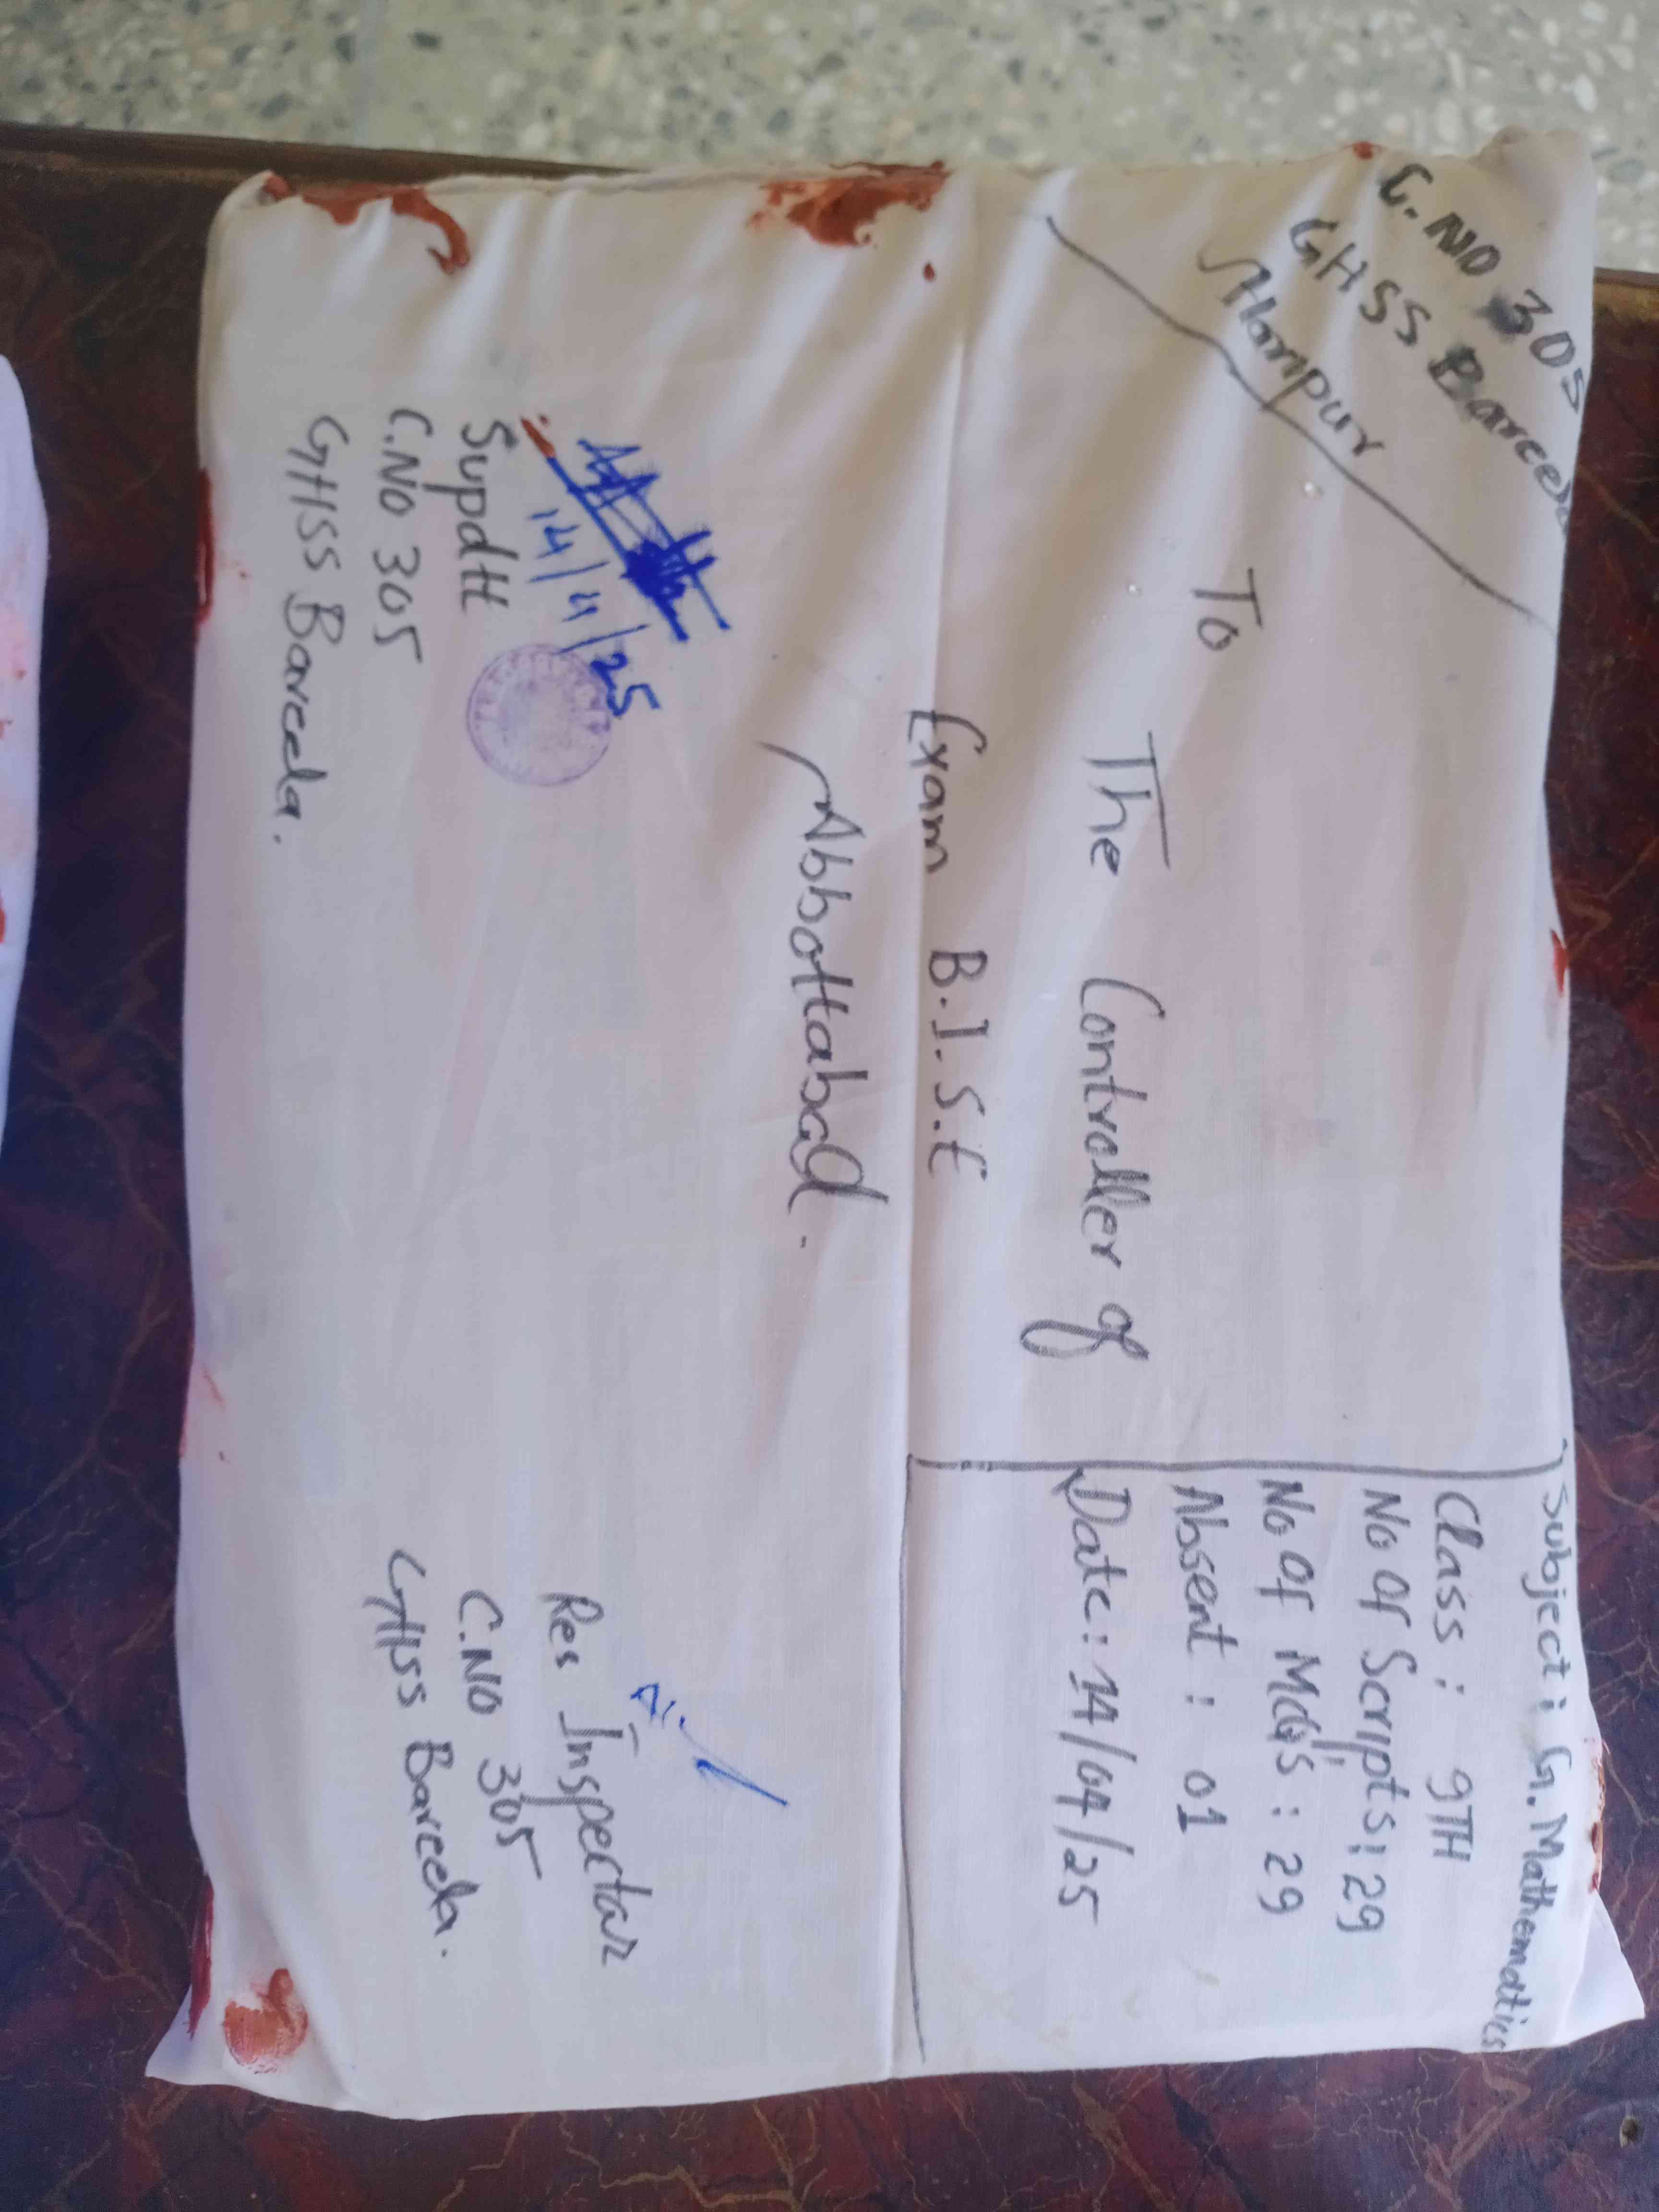 C.NO 305
GHSS Bareela
Haripur
Subject : G. Mathematics
Class : 9TH
No Of Scripts : 29
No Of MCQ's : 29
Absent : 01
Date : 14/04/25
To
The Controller of
Exam B.I.S.E
Abbottabad.
14/4/25
Supdtt
C.NO 305
GHSS Bareela.
Res Inspector
C.NO 305
GHSS Bareela.